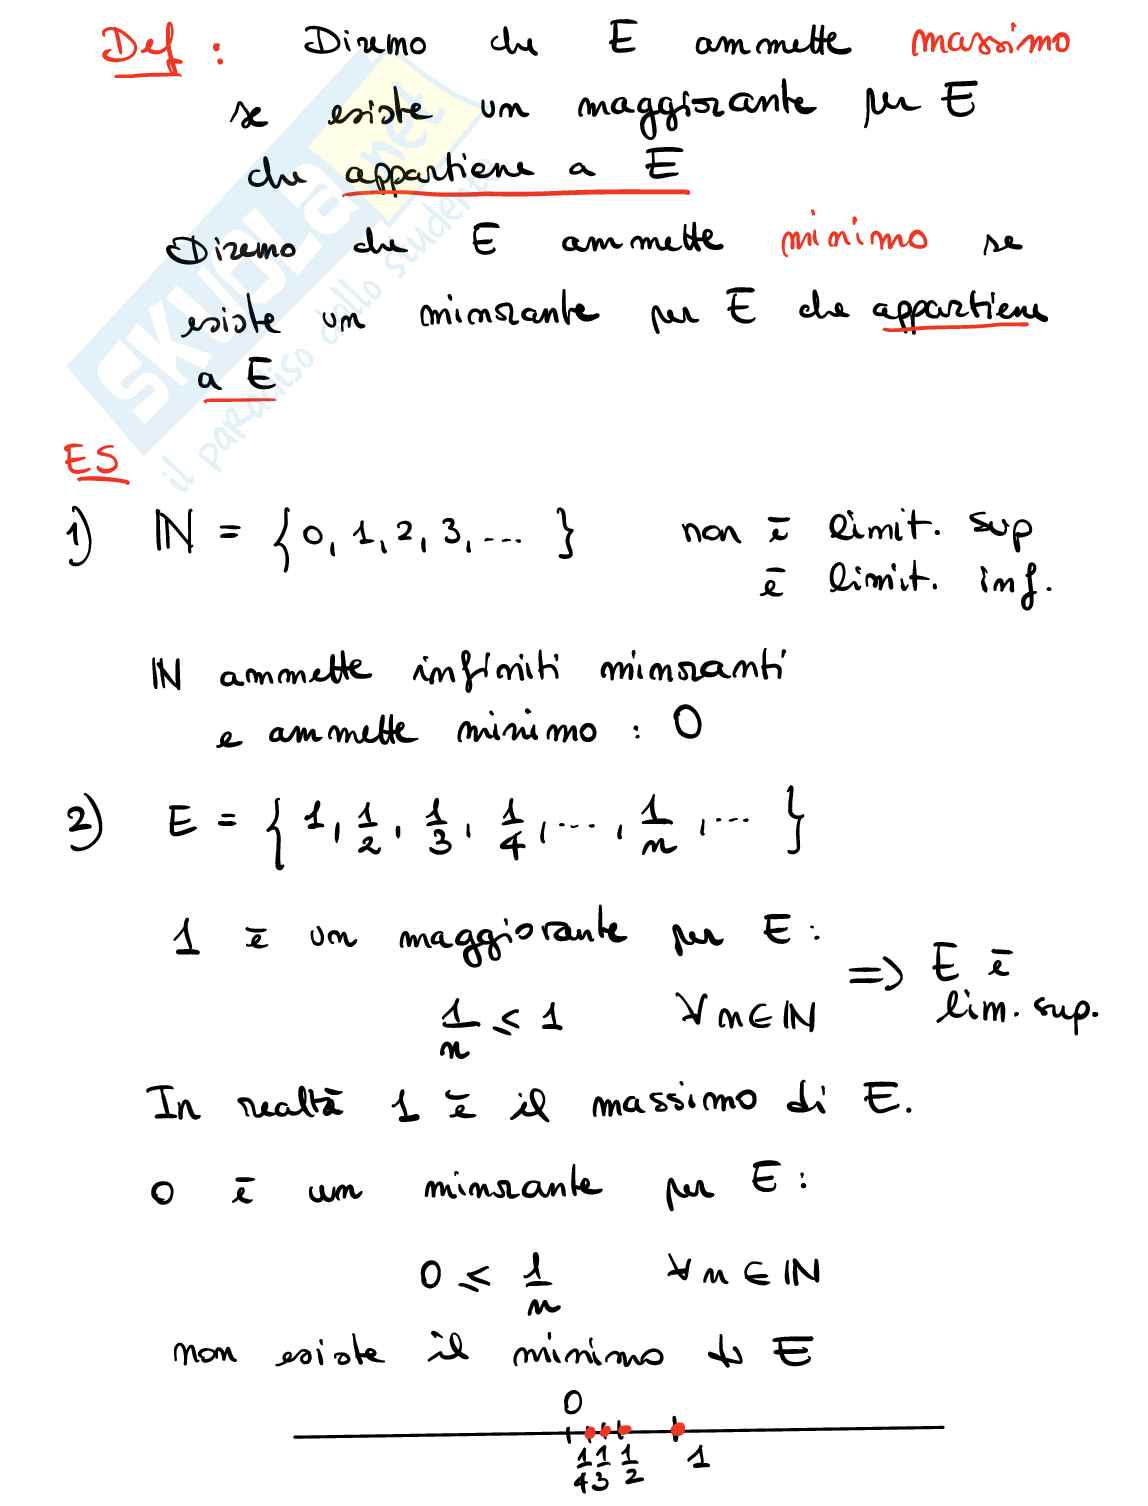 Def : Diremo che E ammette massimo
se esiste un maggiorante per E
che appartiene a E
Diremo che E ammette minimo se
esiste un minorante per E che appartiene
a E
ES
1) ℕ = { 0, 1, 2, 3, ... } non è limit. sup
è limit. inf.
ℕ ammette infiniti minoranti
e ammette minimo : 0
2) E = { 1, 1/2, 1/3, 1/4, ..., 1/n, ... }
1 è un maggiorante per E :
1/n ≤ 1 ∀ n ∈ ℕ => E è
lim. sup.
In realtà 1 è il massimo di E.
0 è un minorante per E :
0 ≤ 1/n ∀ n ∈ ℕ
non esiste il minimo di E
0
1/4 1/3 1/2 1
SKUOLA.net
il paradiso dello studente